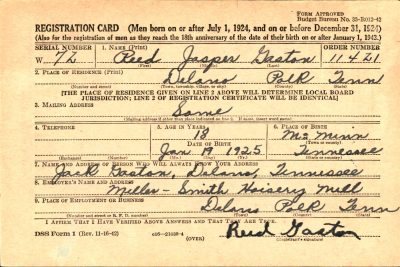 FORM APPROVED
Budget Bureau No. 33-R012-42
REGISTRATION CARD (Men born on or after July 1, 1924, and on or before December 31, 1924)
(Also for the registration of men as they reach the 18th anniversary of the date of their birth on or after January 1, 1943.)
SERIAL NUMBER 1. NAME (Print) ORDER NUMBER
W 72 Reed Jasper Gaston 11421
(First) (Middle) (Last)
2. PLACE OF RESIDENCE (Print)
Delano Polk Tenn
[THE PLACE OF RESIDENCE GIVEN ON LINE 2 ABOVE WILL DETERMINE LOCAL BOARD
JURISDICTION; LINE 2 OF REGISTRATION CERTIFICATE WILL BE IDENTICAL]
3. MAILING ADDRESS
Same
[Mailing address if other than place indicated on line 2. If same, insert word same]
4. TELEPHONE 5. AGE IN YEARS 6. PLACE OF BIRTH
18 McMinn
DATE OF BIRTH (Town or county)
Jan 19 1925 Tennessee
(Exchange) (Number) (Mo.) (Day) (Yr.) (State or country)
7. NAME AND ADDRESS OF PERSON WHO WILL ALWAYS KNOW YOUR ADDRESS
Jack Gaston, Delano, Tennessee
8. EMPLOYER'S NAME AND ADDRESS
Miller-Smith Hoisery Mill
9. PLACE OF EMPLOYMENT OR BUSINESS
Delano Polk Tenn
(Number and street or R. F. D. number) (Town) (County) (State)
I AFFIRM THAT I HAVE VERIFIED ABOVE ANSWERS AND THAT THEY ARE TRUE.
DSS Form 1 (Rev. 11-16-42) (OVER) Reed Gaston
(Registrant's signature)